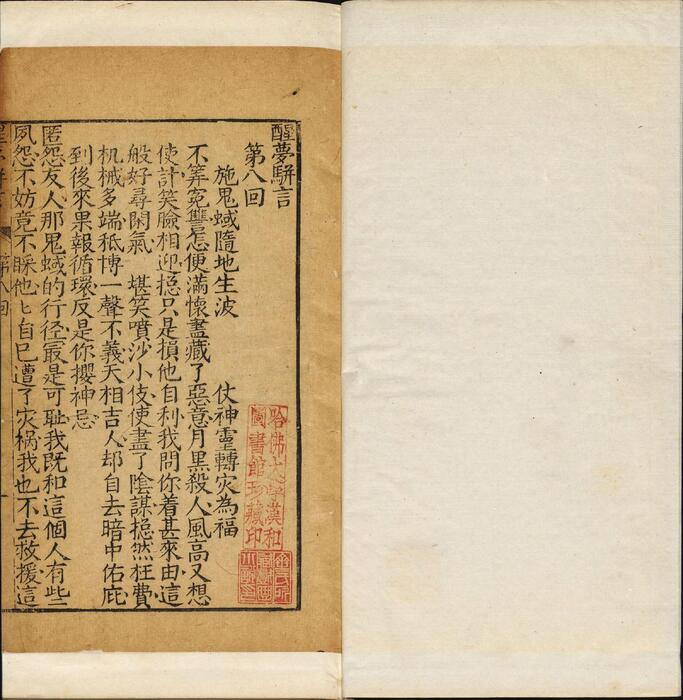 醒夢駢言
第八回
施鬼蜮隨地生波　仗神靈轉灾為福
不筭寃讐怎便滿懷盡藏了惡意月黑殺人風高又想
使計笑臉相迎捴只是損他自利我問你着甚來由這
般好尋閑氣　堪笑噴沙小伎使盡了陰謀捴然枉費
机械多端秪博一聲不義天相吉人却自去暗中佑庇
到後來果報循環反是你攖神忌
匿怨友人那鬼蜮的行径最是可耻我既和這個人有些
夙怨不妨竟不睬他匕自巳遭了灾祸我也不去救援這
第八回
哈佛大學漢和
圖書館珍藏印